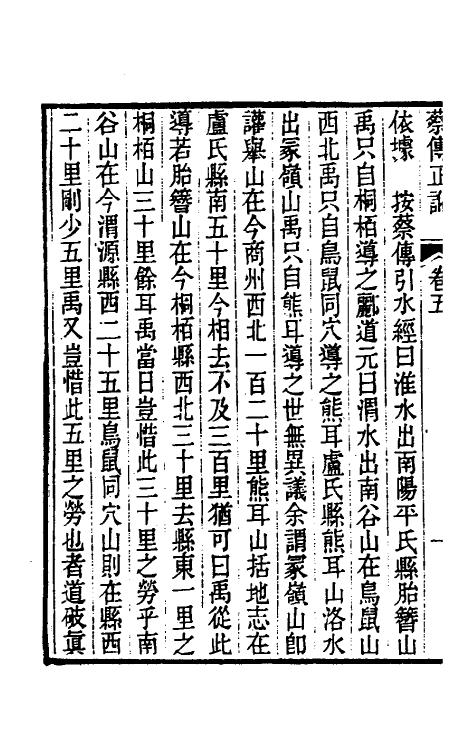 蔡傳正訛 卷五 一
依據 按蔡傳引水經曰淮水出南陽平氏縣胎簪山
禹只自桐栢導之酈道元曰渭水出南谷山在鳥鼠山
西北禹只自鳥鼠同穴導之熊耳盧氏縣熊耳山洛水
出冢嶺山禹只自熊耳導之世無異議余謂冢嶺山卽
讙舉山在今商州西北一百二十里熊耳山括地志在
盧氏縣南五十里今相去不及三百里猶可曰禹從此
導若胎簪山在今桐栢縣西北三十里去縣東一里之
桐栢山三十里餘耳禹當日豈惜此三十里之勞乎南
谷山在今渭源縣西二十五里鳥鼠同穴山則在縣西
二十里剛少五里禹又豈惜此五里之勞也者道破眞